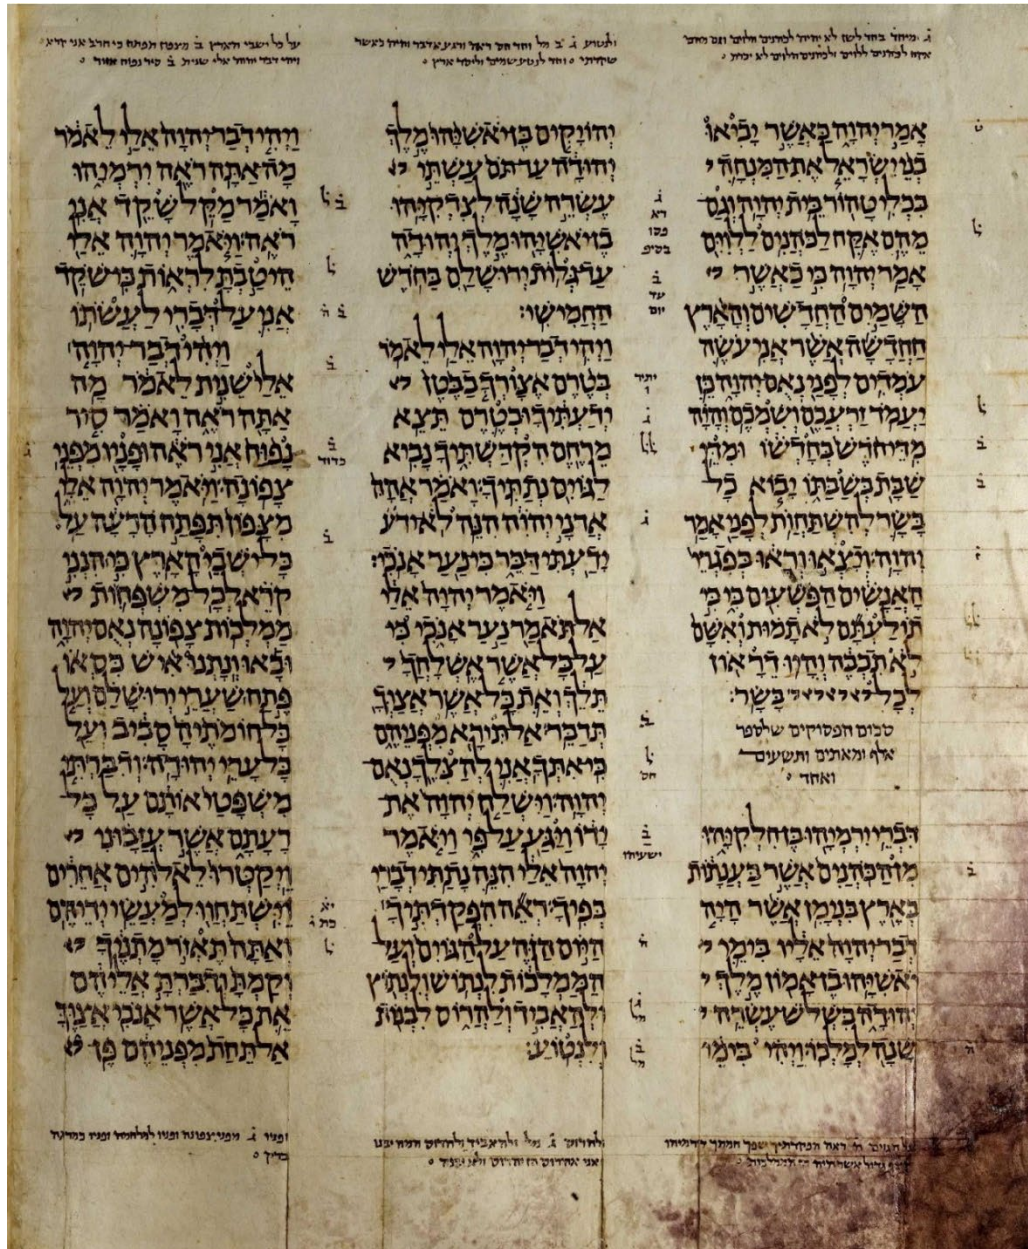 ג ומיחד בחד לשן לא יהיה לכהנים הלוים וגם מהם
אקח לכהנים ללוים ולכהנים הלוים לא יכרת
אמר יהוה כאשר יביאו
בני ישראל את המנחה
בכלי טהור בית יהוה וגם
מהם אקח לכהנים ללוים
אמר יהוה כי כאשר
השמים החדשים והארץ
החדשה אשר אני עשה
עמדים לפני נאם יהוה כן
יעמד זרעכם ושמכם והיה
מדי חדש בחדשו ומדי
שבת בשבתו יבוא כל
בשר להשתחות לפני אמר
יהוה ויצאו וראו בפגרי
האנשים הפשעים בי כי
תולעתם לא תמות ואשם
לא תכבה והיו דראון
לכל בשר׃
סכום הפסוקים שלספר
אלף ומאתים ותשעים
ואחד
דברי ירמיהו בן חלקיהו
מן הכהנים אשר בענתות
בארץ בנימן אשר היה
דבר יהוה אליו בימי
יאשיהו בן אמון מלך
יהודה בשלש עשרה
שנה למלכו ויהי בימי
ולנטוע ג ב מל וחד חס ראה ורגע אדבר והיה כאשר
שקדתי וחד לנטע שמים וליסד ארץ
יהויקים בן יאשיהו מלך
יהודה עד תם עשתי
עשרה שנה לצדקיהו
בן יאשיהו מלך יהודה
עד גלות ירושלם בחדש
החמישי׃
ויהי דבר יהוה אלי לאמר
בטרם אצורך בבטן
ידעתיך ובטרם תצא
מרחם הקדשתיך נביא
לגוים נתתיך ואמר אהה
אדני יהוה הנה לא ידע
ידעתי דבר כי נער אנכי׃
ויאמר יהוה אלי
אל תאמר נער אנכי כי
על כל אשר אשלחך
תלך ואת כל אשר אצוך
תדבר אל תירא מפניהם
כי אתך אני להצלך נאם
יהוה וישלח יהוה את
ידו ויגע על פי ויאמר
יהוה אלי הנה נתתי דברי
בפיך ראה הפקדתיך
היום הזה על הגוים ועל
הממלכות לנתוש ולנתוץ
ולהאביד ולהרוס לבנות
ולנטוע׃
על כל ישבי הארץ ב מצפון תפתח כי חרב אני קרא
ויהי דבר יהוה אלי שנית ב סיר נפוח אזור
ויהי דבר יהוה אלי לאמר
מה אתה ראה ירמיהו
ואמר מקל שקד אני
ראה ויאמר יהוה אלי
היטבת לראות כי שקד
אני על דברי לעשתו
ויהי דבר יהוה
אלי שנית לאמר מה
אתה ראה ואמר סיר
נפוח אני ראה ופניו מפני
צפונה ויאמר יהוה אלי
מצפון תפתח הרעה על
כל ישבי הארץ כי הנני
קרא לכל משפחות
ממלכות צפונה נאם יהוה
ובאו ונתנו איש כסאו
פתח שערי ירושלם ועל
כל חומתיה סביב ועל
כל ערי יהודה ודברתי
משפטי אותם על כל
רעתם אשר עזבוני
ויקטרו לאלהים אחרים
וישתחוו למעשי ידיהם
ואתה תאזר מתניך
וקמת ודברת אליהם
את כל אשר אנכי אצוך
אל תחת מפניהם פן
ולהרוס ג מל ולהאביד ולהרוס המה יבנו
ופניו ג מפני צפונה ופניו